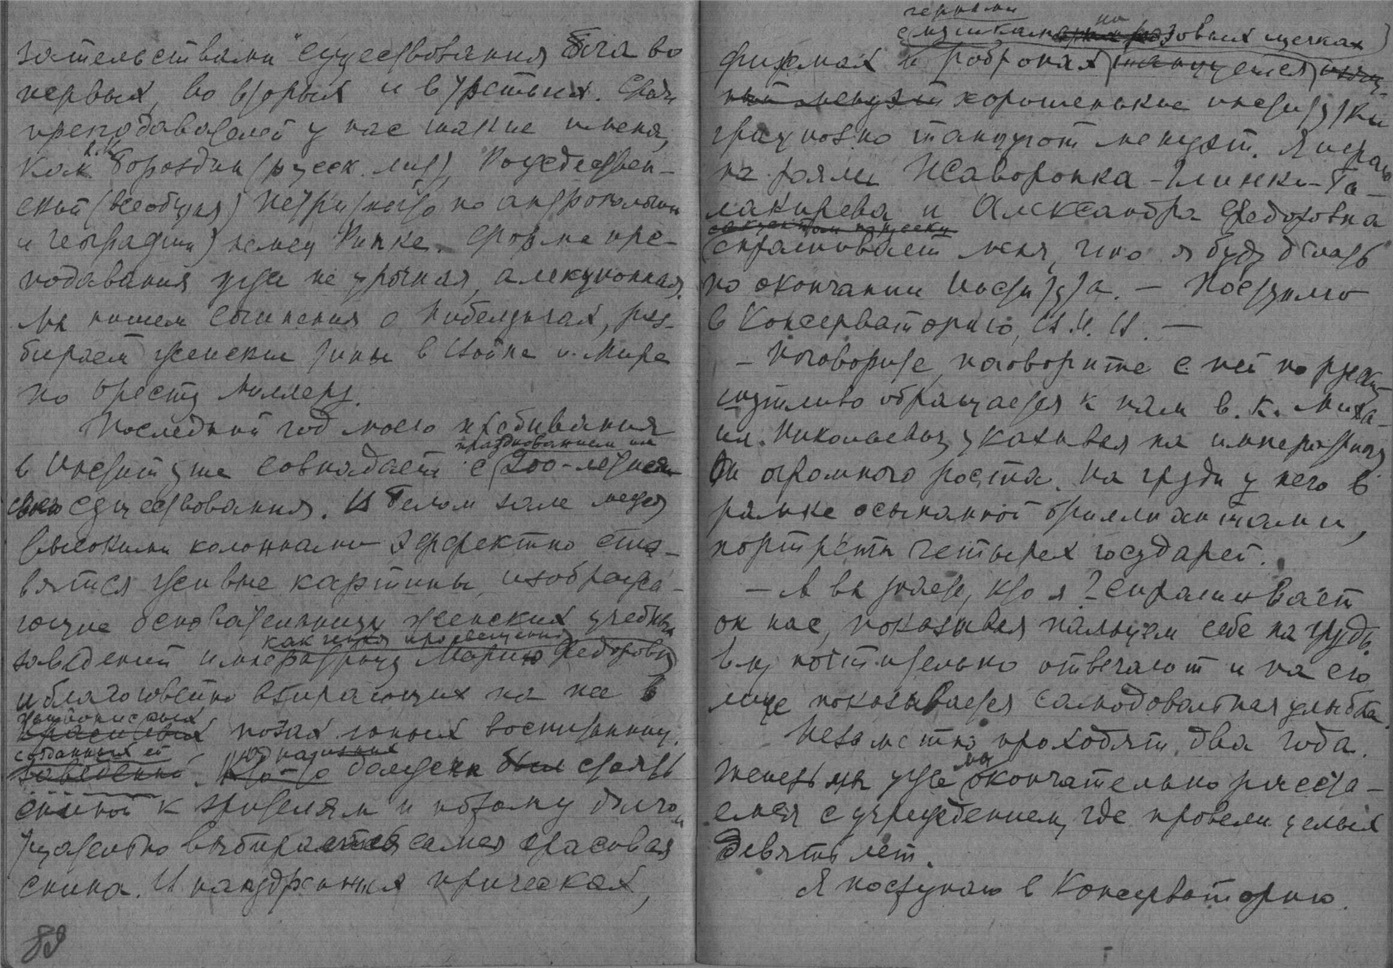 зательствами "существования Бога во
первых, во вторых и в третьих. Среди
преподавателей у нас такие имена,
как А.К. Бороздин (русск. лит.), Рождествен-
ский (всеобщая) Петри по антропологии
и географии) немец Финке. Форма пре-
подавания уже не урочная, а лекционная.
Мы пишем сочинения о Нибелунгах, раз-
бираем женские типы в Войне и Мире
по Оресту Миллеру.
Последний год моего пребывания
празднованием им
в Институте совпадает с 100-летием
своего существования. В Белом зале между
высокими колоннами эффектно ста-
вятся живые картины, изобража-
ющие основательницу женских учебных
заведений императрицу Марию Федоровну
и благоговейно взирающих на нее в
живописных
позах юных воспитанниц.
созданных ей
заведений. должен был стоять
спиной к зрителям и потому долго и
тщательно выбирается самая красивая
спина. И в напудренных прическах,
83
черными
мушками на розовых щечках
фижмах и робронах
хорошенькие институтки
грациозно танцуют менуэт. Я играю
на рояли Жаворонка - Глинки - Ба-
лакирева и Александра Федоровна
спрашивает меня, что я буду делать
по окончании Института. - Поступлю
в Консерваторию, В.И.В. —
- Поговорите, поговорите с ней по русски,
шутливо обращается к нам в. к. Миха-
ил Николаевич, указывая на императрицу
Он огромного роста. На груди у него в
рамке осыпанной бриллиантами,
портреты четырех государей.
- А вы знаете, кто я? спрашивает
он нас, показывая пальцем себе на грудь.
Ему почтительно отвечают и на его
лице показывается самодовольная улыбка.
Незаметно проходят два года.
Теперь мы уже окончательно расста-
емся с учреждением, где провели целых
девять лет.
Я поступаю в Консерваторию.